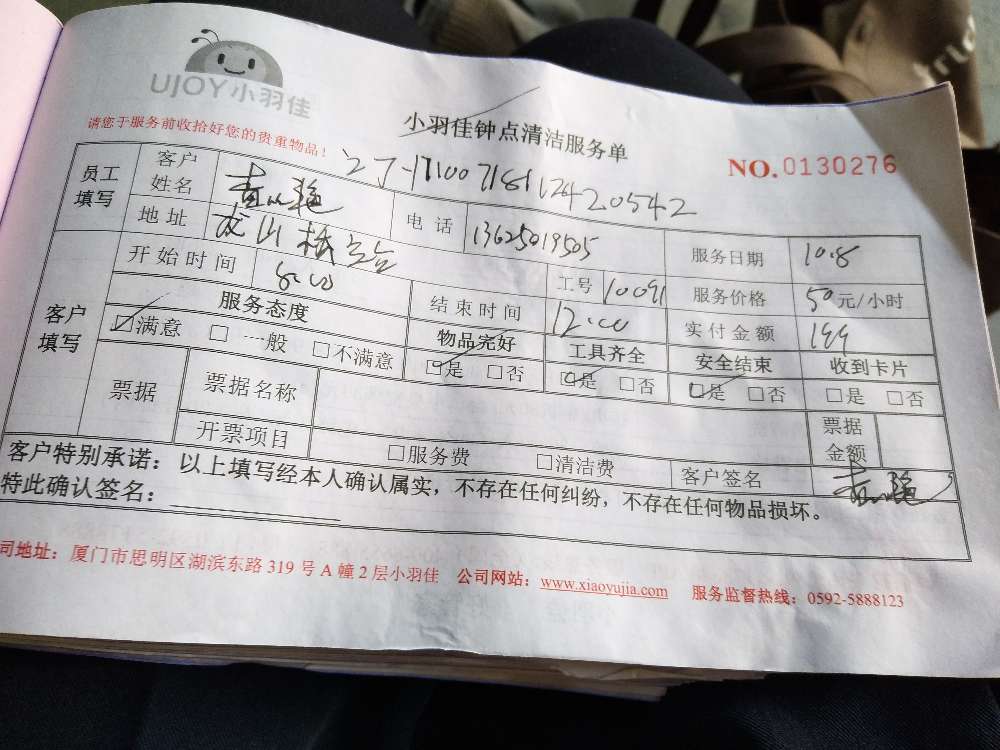 UJOY小羽佳
小羽佳钟点清洁服务单
请您于服务前收拾好您的贵重物品！
NO.0130276
员工填写 客户姓名 电话 13625019505 服务日期 10.8
地址 工号 10091 服务价格 50元/小时
客户填写 开始时间 8:00 结束时间 12:00 实付金额 199
服务态度 物品完好 工具齐全 安全结束 收到卡片
☑满意 □一般 □不满意 ☑是 □否 ☑是 □否 ☑是 □否 □是 □否
票据 票据名称 票据金额
开票项目 □服务费 □清洁费 客户签名
客户特别承诺：以上填写经本人确认属实，不存在任何纠纷，不存在任何物品损坏。
特此确认签名：
司地址：厦门市思明区湖滨东路319号A幢2层小羽佳 公司网站：www.xiaoyujia.com 服务监督热线：0592-5888123